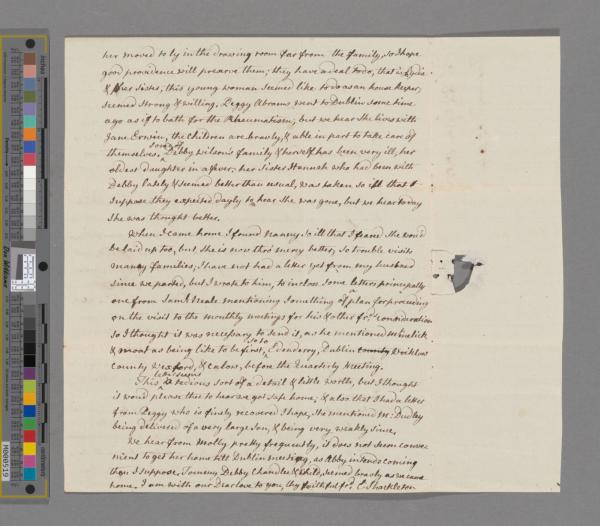 her moved to ly in the drawing room far from the family, so I hope
good providence will preserve them; they have a deal to do, that is Lydia
& her sister; this young woman seemed like to do as an house keeper,
seemed strong & willing. Peggy Abrams went to Dublin some time
ago as if to bath for the Rheumatism, but we hear she lives with
Jane Erwin, the children are bravly, & able in part to take care of
themselves, some of Debby Wilson's family & herself has been very ill, her
oldest daughter in a fever: her sister Hannah who had been with
Debby lately & seemed better than usual, was taken so ill that I
suppose they expected dayly to hear she was gone, but we hear today
she was thought better.
When I came home I found Nanny so ill that I feared she would
be laid up too, but she is now thro' mercy better, so trouble visits
many families, I have not had a letter yet from my husband
since we parted, but I wrote to him, to inclose some letters principally
one from Saml Neale mentioning something of plan for proceeding
on the visit to the monthly meetings for his & other frds consideration
so I thought it was necessary to send it, as he mentioned
& moat as being like to be first, so to Edenderry, Dublin county Wicklow
county Wexford, & Catlow, before the Quarterly Meeting.
This letter seems a tedious sort of a detail & little worth, but I thought
it would please thee to hear we got safe home; & also that I had a letter
from Peggy who is finely recovered I hope, she mentioned M: Dudley
being delivered of a very large son, & being very weakly since.
We hear from Molly pretty frequently, it does not seem conve-
nient to get her home till Dublin meeting, as Abby intends coming
then I suppose. Tommy Debby Chandlee & child seemed bravly as we came
home. I am with our Dear love to you, thy faithful frd. E Shackleton